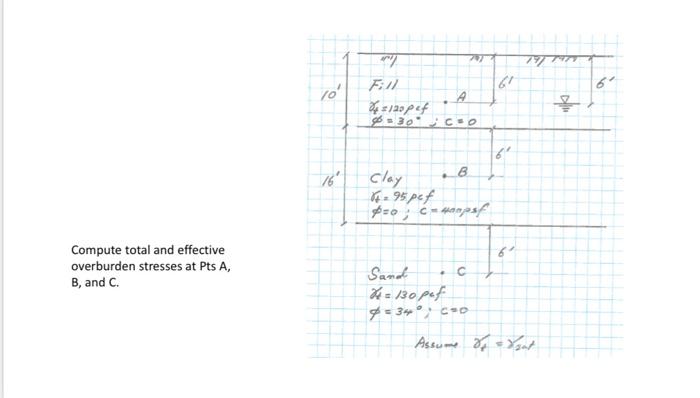 Compute total and effective
overburden stresses at Pts A,
B, and C.
10'
Fill
γt = 120 pcf
φ = 30° ; C = 0
A
6'
6'
16'
Clay
γt = 95 pcf
φ = 0 ; C = 400 psf
B
6'
Sand
γt = 130 pcf
φ = 34° ; C = 0
C
6'
Assume γt = γsat